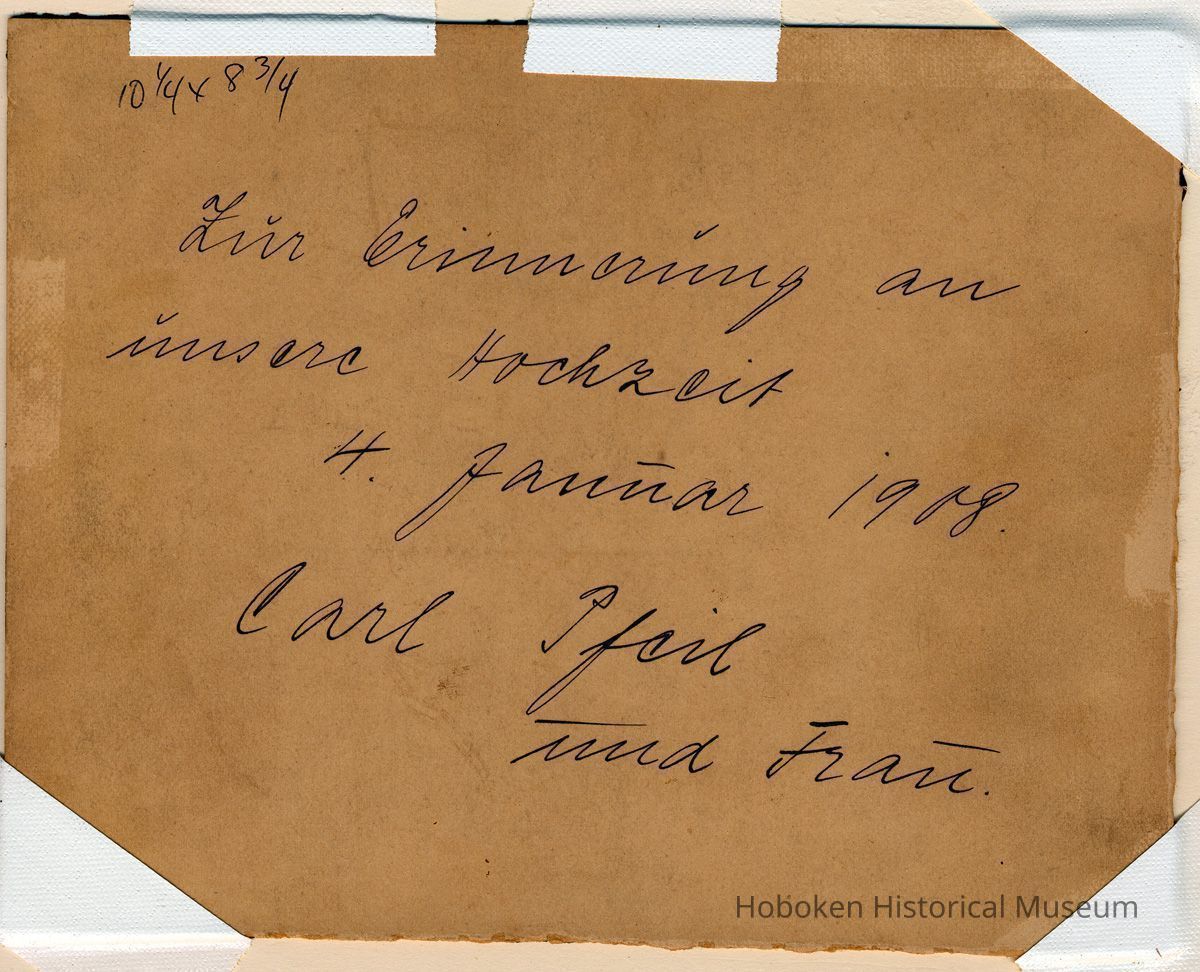 10 1/4 x 8 3/4
Zur Erinnerung an
unsere Hochzeit
4. Januar 1908.
Carl Pfeil
und Frau.
Hoboken Historical Museum